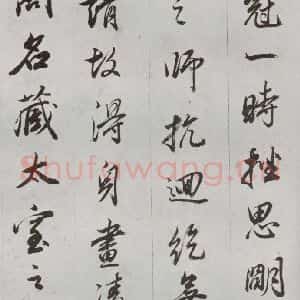 冠一時思
之師抗迴絕
故得身畫凌
閣名藏太室之
Shufawang.cn